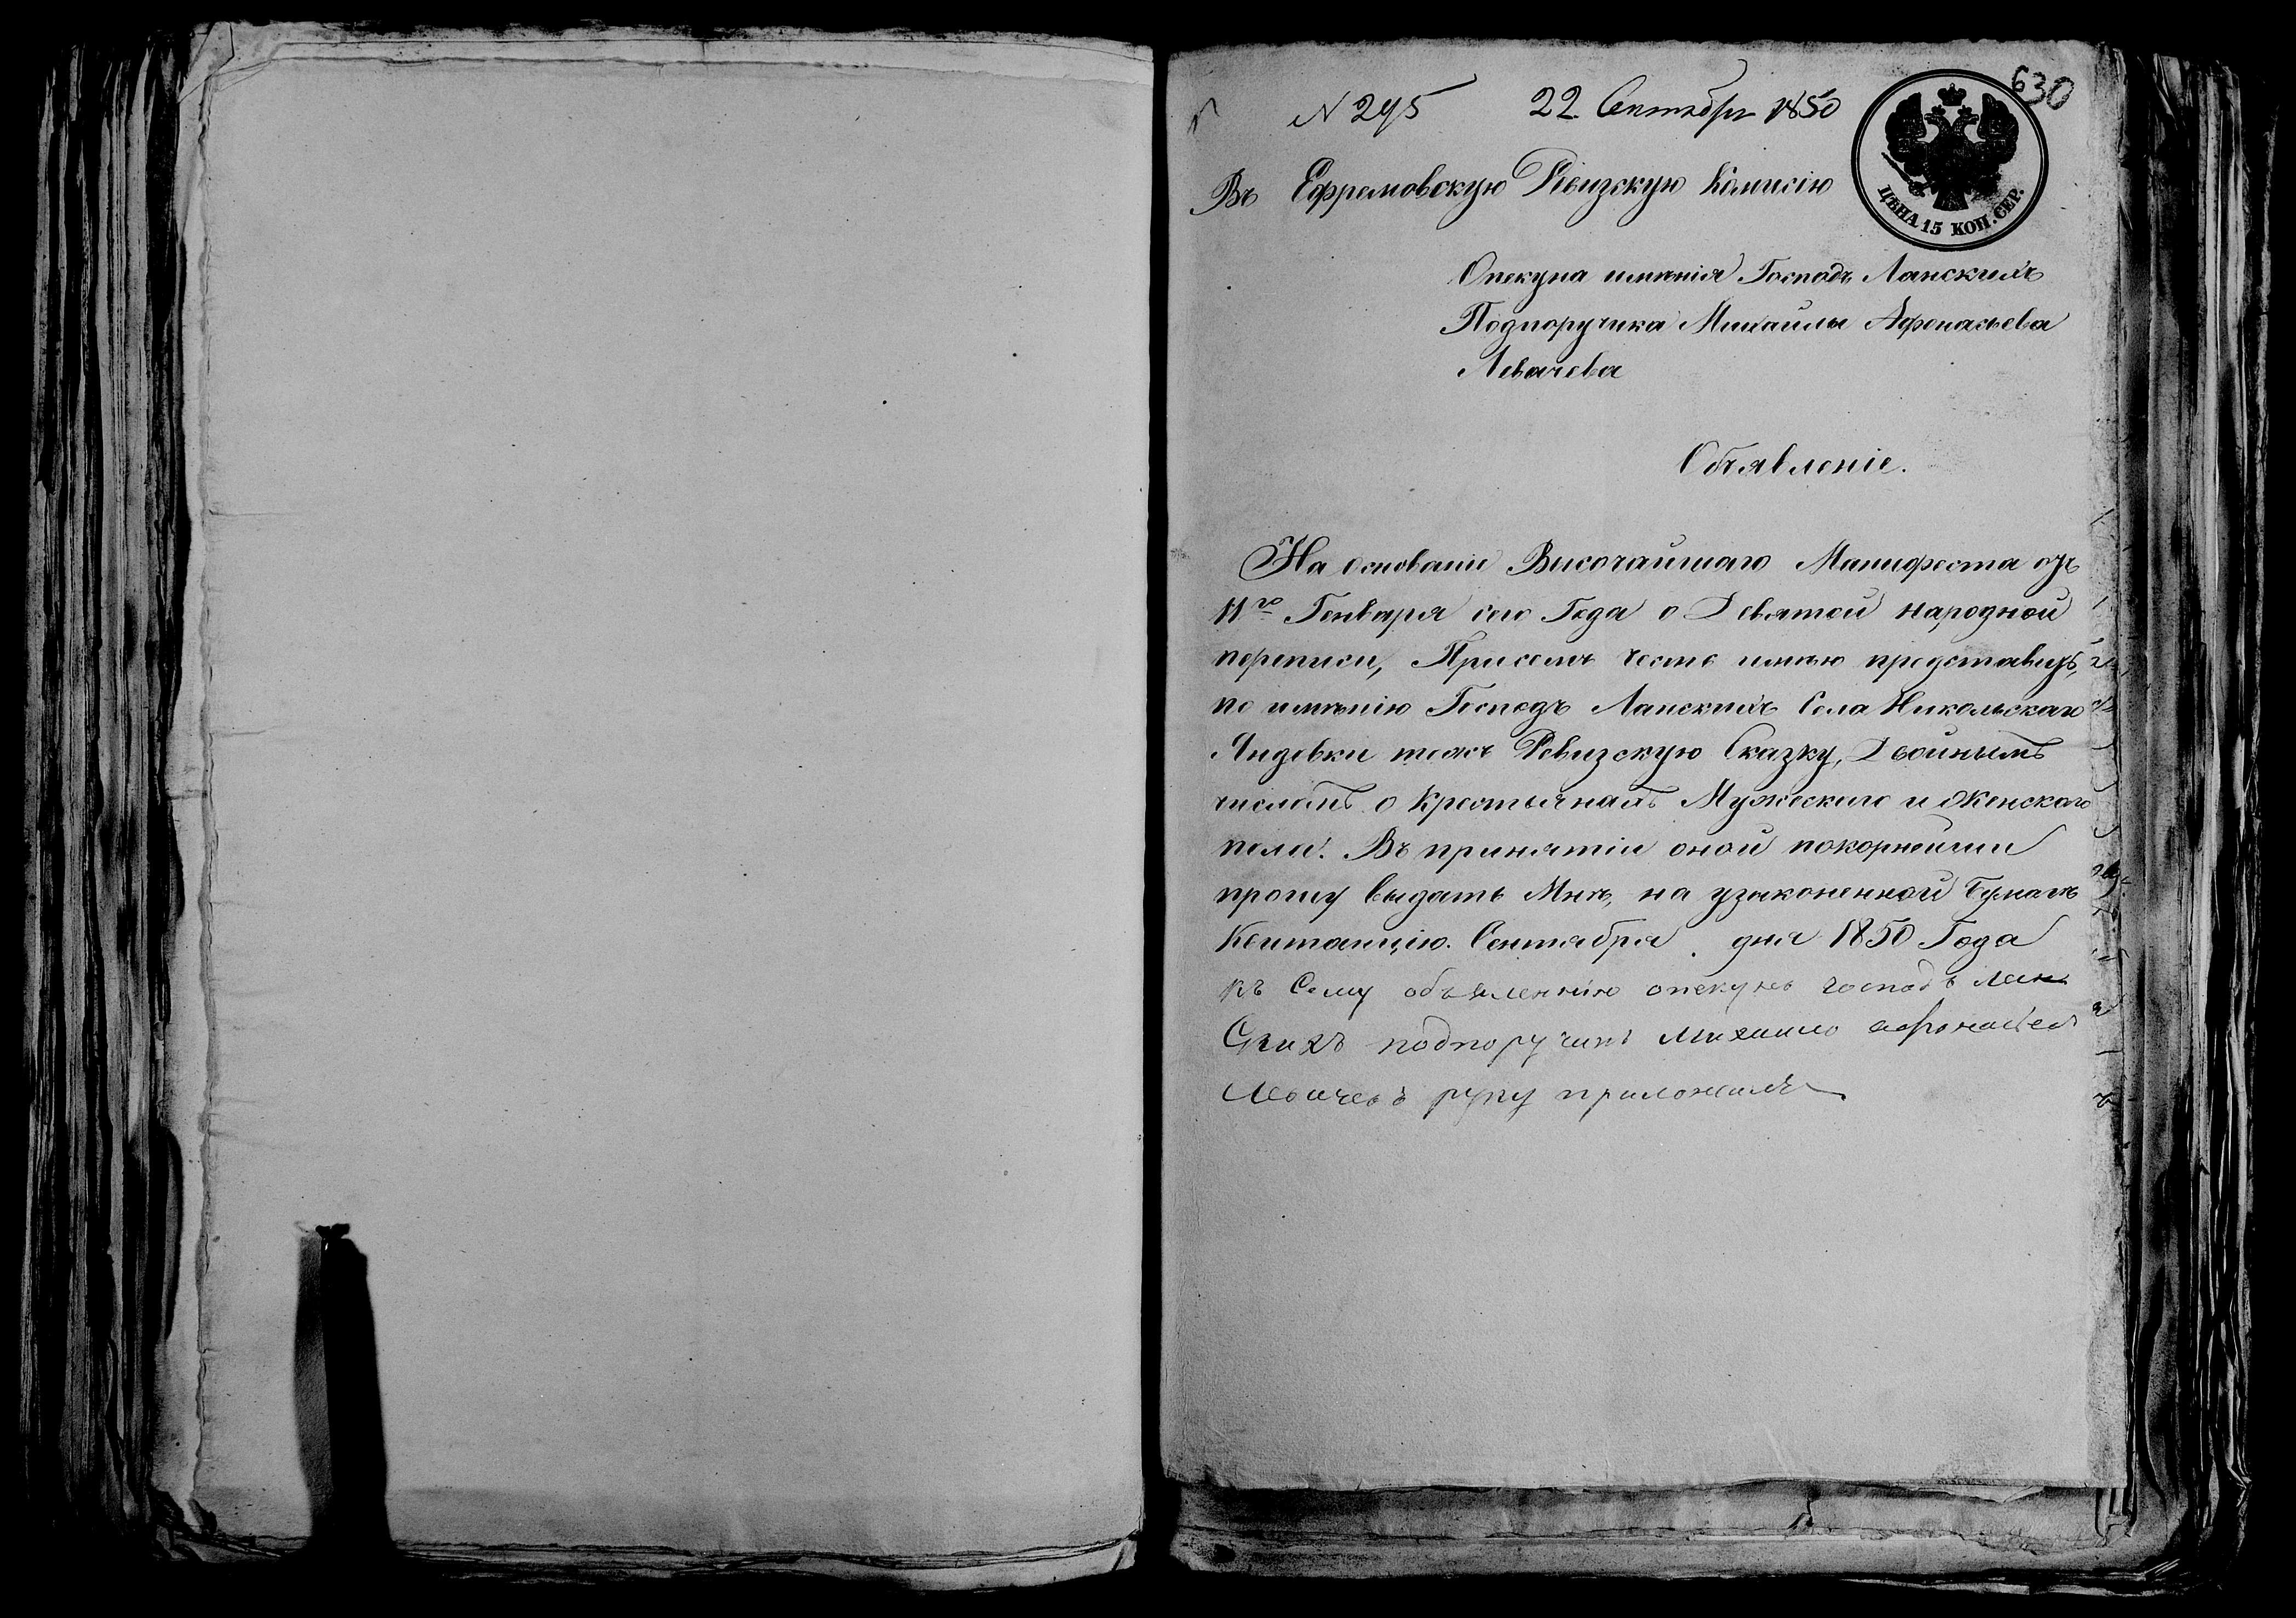 630
N 295 22. Сентября 1850
Въ Ефремовскую Ревизскую Комисію
ЦѢНА 15 КОП. СЕР.
Опекуна имѣнія Господъ Ланскихъ
Подпоручика Михаилы Афонасьева
Левачева
Объявленіе.
На основаніи Высочайшаго Манифеста отъ
11го Генваря сего Года о Девятой народной
переписи, Присемъ честь имѣю представить,
по имѣнію Господъ Ланскихъ Села Никольскаго
Яндовки тожъ Ревизскую Сказку, Двойнымъ
числомъ о Крестьянахъ Мужескаго и Женскаго
пола. Въ принятіи оной покорнейши
прошу выдать Мнѣ, на узаконенной бумагѣ
Квитанцію. Сентября дня 1850 Года
къ Сему объявленію опекунъ господъ Лан
Скихъ подпоручикъ Михаило афонасьев
Левачевъ руку приложилъ